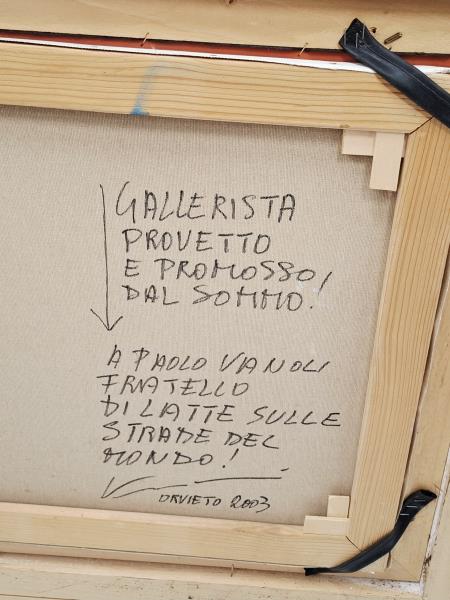 GALLERISTA
PROVETTO
E PROMOSSO
DAL SOMMO!
A PAOLO VANOLI
FRATELLO
DI LATTE SULLE
STRADE DEL
MONDO!
ORVIETO 2003